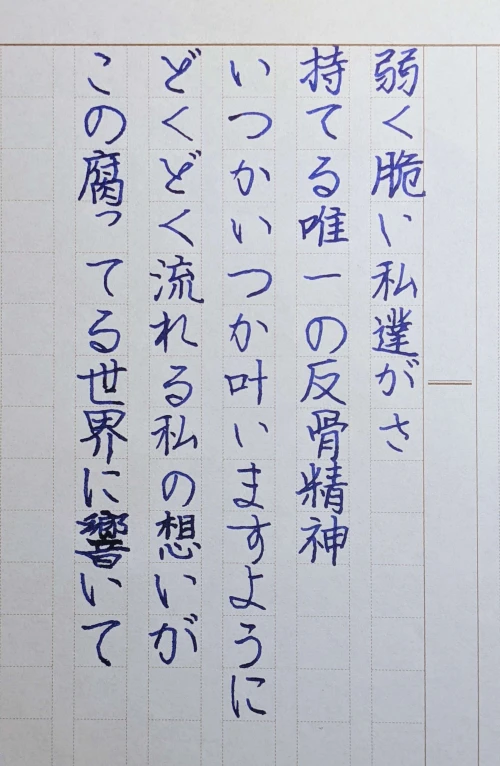 弱く脆い私達がさ
持てる唯一の反骨精神
いつかいつか叶いますように
どくどく流れる私の想いが
この腐ってる世界に響いて